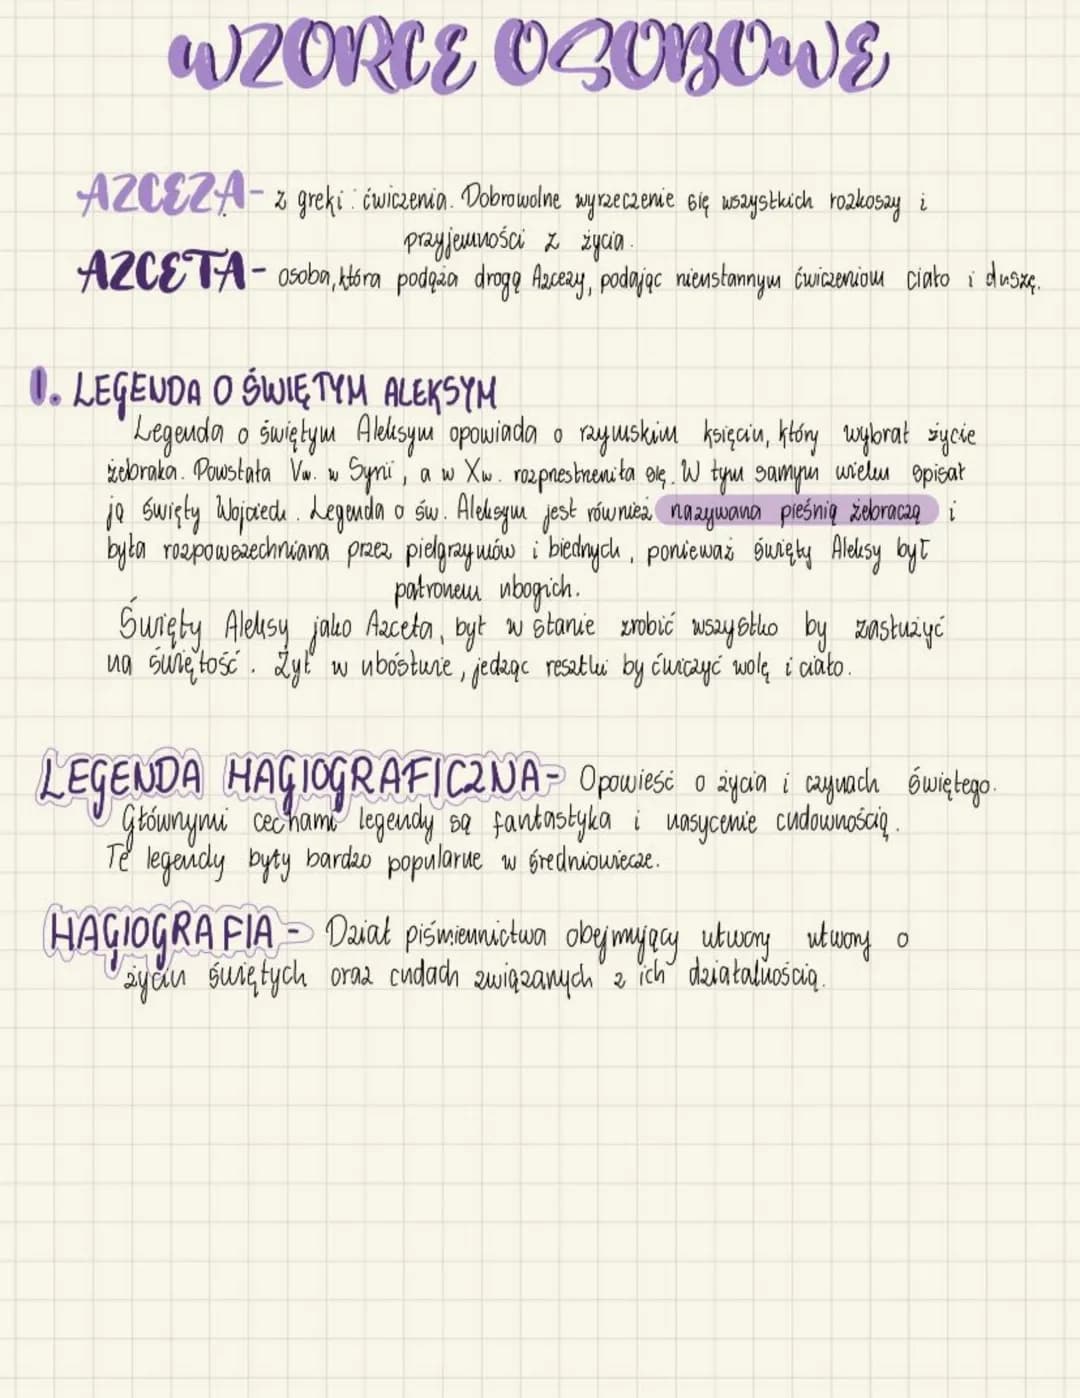 WZORCE OSOBOWE
AZCEZA - z greki: ćwiczenia. Dobrowolne wyrzeczenie się wszystkich rozkoszy i
przyjemności z życia.
AZCETA - osoba, która podąża drogą Azcezy, podając nieustannym ćwiczeniom ciało i duszę.
1. LEGENDA O ŚWIĘTYM ALEKSYM
Legenda o świętym Aleksym opowiada o rzymskim księciu, który wybrał życie
żebraka. Powstała Vw. w Syrii, a w Xw. rozprestrzeniła się. W tym samym wieku opisał
ją święty Wojciech. Legenda o św. Aleksym jest również nazywana pieśnią żebraczą i
była rozpowszechniana przez pielgrzymów i biednych, ponieważ święty Aleksy był
patronem ubogich.
Święty Aleksy jako Azceta, był w stanie zrobić wszystko by zasłużyć
na świętość. Żył w ubóstwie, jedząc resztki by ćwiczyć wolę i ciało.
LEGENDA HAGIOGRAFICZNA - Opowieść o życia i czynach świętego.
Głównymi cechami legendy są fantastyka i nasycenie cudownością.
Te legendy były bardzo popularne w średniowiecze.
HAGIOGRAFIA - Dział piśmiennictwa obejmujący utwory utwory o
życiu świętych oraz cudach związanych z ich działalnością.